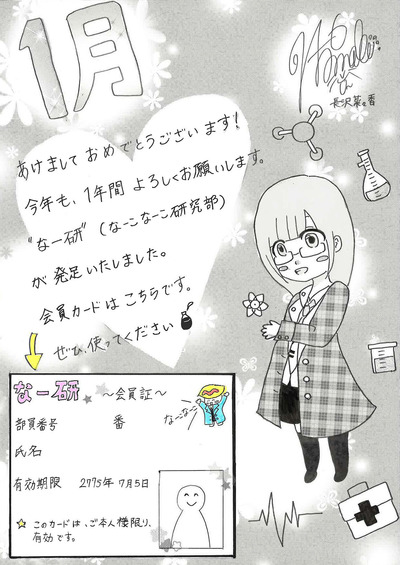 1月
長沢菜々香
あけまして おめでとうございます!
今年も、1年間 よろしくお願いします。
"なー研" (なーこなーこ研究部)
が 発足いたしました。
会員カードはこちらです。
ぜひ、使ってください
なー研 ～会員証～
部員番号 番
なーこなーこ
氏名
有効期限 2775年7月5日
このカードは、ご本人様限り、
有効です。